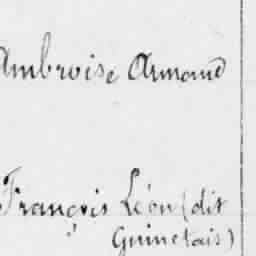 Ambroise Armand
François Léon (dit
Guinetais)